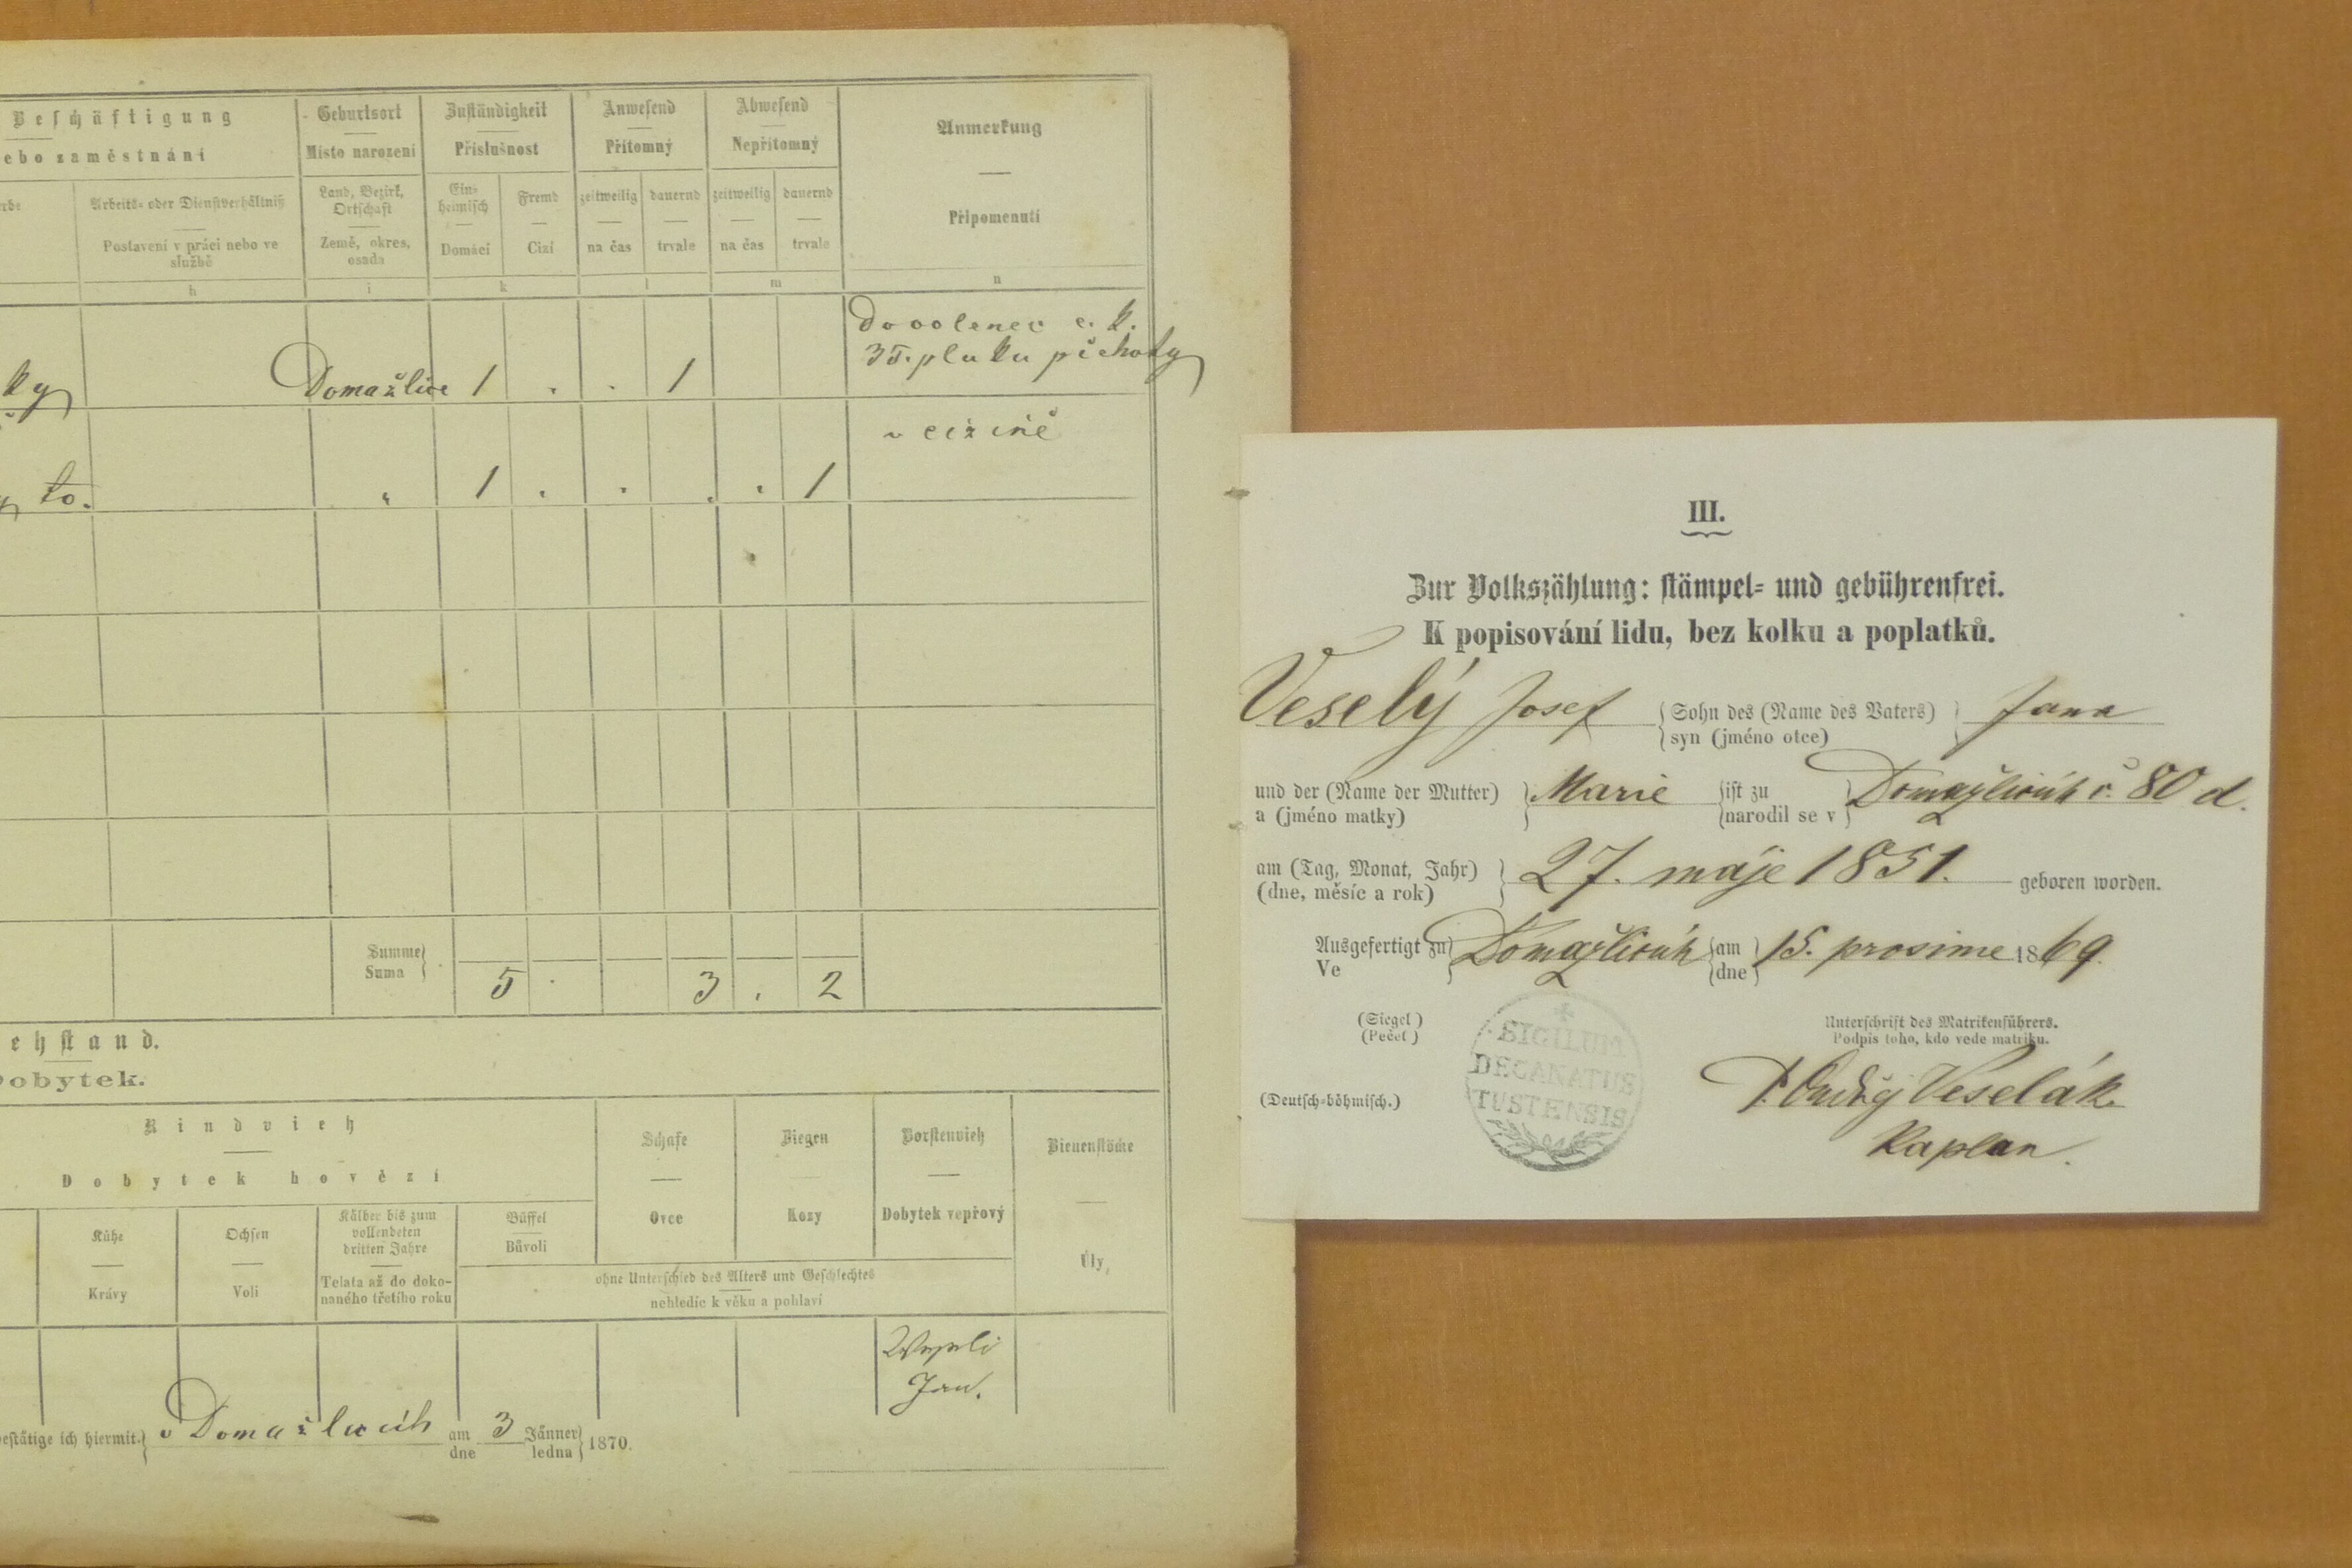 Beschäftigung
ebo zaměstnání
Arbeits- oder Dienstverhältniß
Postavení v práci nebo ve
službě
h
Geburtsort
Místo narození
Land, Bezirk,
Ortschaft
Země, okres,
osada
i
Zuständigkeit
Příslušnost
Ein-
heimisch
Domácí
Fremd
Cizí
k
Anwesend
Přítomný
zeitweilig
na čas
dauernd
trvale
l
Abwesend
Nepřítomný
zeitweilig
na čas
dauernd
trvale
m
Anmerkung
Připomenutí
n
ky Domažlice 1 . . 1
Dovolenec c. k.
35. pluku pěchoty
to. " 1 . . . . 1
v cizině
Summe
Suma
5 . 3 . 2
ehstand.
Dobytek.
Rindvieh
Dobytek hovězí
Kühe
Krávy
Ochsen
Voli
Kälber bis zum
vollendeten
dritten Jahre
Telata až do doko-
naného třetího roku
Büffel
Bůvoli
Schafe
Ovce
Ziegen
Kozy
Borstenvieh
Dobytek vepřový
ohne Unterschied des Alters und Geschlechtes
nehledíc k věku a pohlaví
Bienenstöcke
Úly,
Jan.
bestätige ich hiermit. v Domažlicích am 3 Jänner 1870.
dne ledna
III.
Zur Volkszählung: stämpel- und gebührenfrei.
K popisování lidu, bez kolku a poplatků.
Veselý Josef Sohn des (Name des Vaters) Jana
syn (jméno otce)
und der (Name der Mutter) Marie ist zu Domažlicích č. 80 d.
a (jméno matky) narodil se v
am (Tag, Monat, Jahr) 27. máje 1851. geboren worden.
(dne, měsíc a rok)
Ausgefertigt zu Domažlicích am 15. prosince 1869.
Ve dne
(Siegel)
(Pečeť)
SIGILUM
DECANATUS
TUSTENSIS
Unterschrift des Matrikenführers.
Podpis toho, kdo vede matriku.
(Deutsch-böhmisch.)
P. Ondřej Veselák
Kaplan.